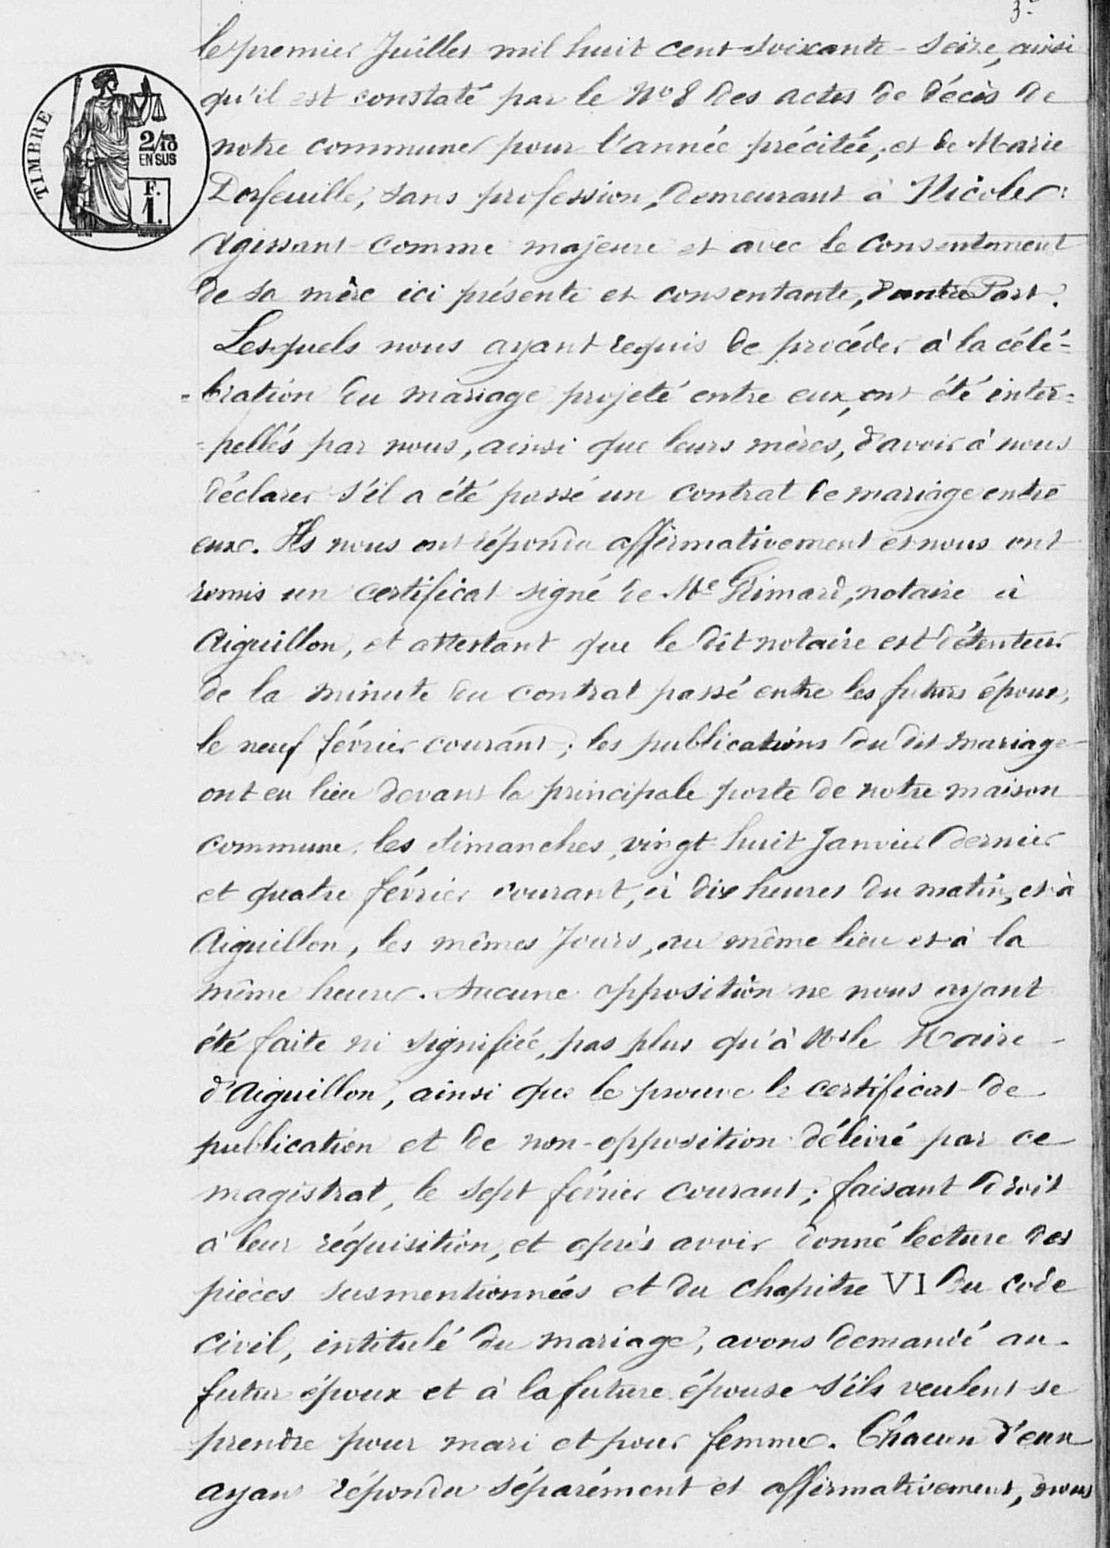 3e
le premier Juillet mil huit cent soixante-seize, ainsi
qu'il est constaté par le No 8 des actes de décès de
notre commune pour l'année précitée, et de Marie
Dorfeuille, sans profession, demeurant à Nicole;
Agissant comme majeure et avec le consentement
de sa mère ici présente et consentante, d'autre Part.
Lesquels nous ayant requis de procéder à la célé-
-bration du mariage projeté entre eux, ont été inter-
-pellés par nous, ainsi que leurs mères, d'avoir à nous
déclarer s'il a été passé un contrat de mariage entre
eux. Ils nous ont répondu affirmativement et nous ont
remis un certificat signé de Me Grimard, notaire à
Aiguillon, et attestant que le dit notaire est détenteur
de la minute du contrat passé entre les futurs époux,
le neuf février courant; les publications du dit mariage
ont eu lieu devant la principale porte de notre maison
commune, les dimanches, vingt huit Janvier dernier
et quatre février courant, à dix heures du matin, et à
Aiguillon, les mêmes Jours, au même lieu et à la
même heure. Aucune opposition ne nous ayant
été faite ni signifiée, pas plus qu'à Mr le Maire
d'Aiguillon, ainsi que le prouve le certificat de
publication et de non-opposition délivré par ce
magistrat, le sept février courant; faisant droit
à leur réquisition, et après avoir donné lecture des
pièces susmentionnées et du chapitre VI du code
civil, intitulé du mariage, avons demandé au
futur époux et à la future épouse s'ils veulent se
prendre pour mari et pour femme. Chacun d'eux
ayant répondu séparément et affirmativement, nous
TIMBRE
2/10
EN SUS
F.
1.